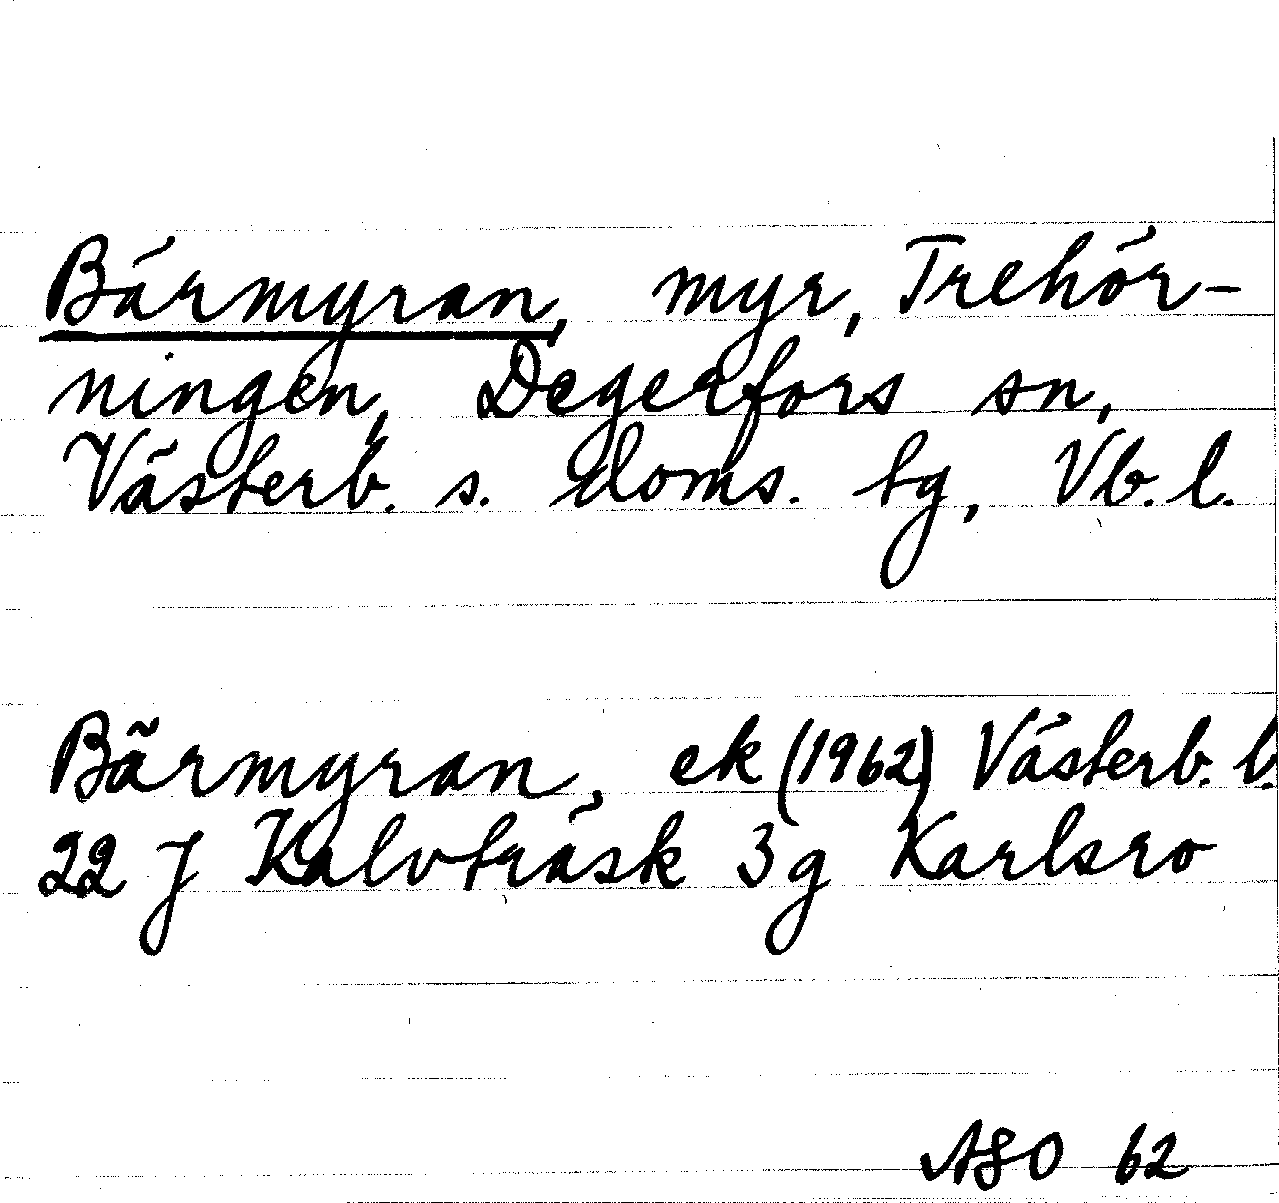 Bärmyran, myr, Trehör-
ningen, Degerfors sn,
Västerb. s. doms. tg, Vb. l.
Bärmyran, ek (1962) Västerb. l.
22 J Kalvträsk 3g Karlsro
ASO 62